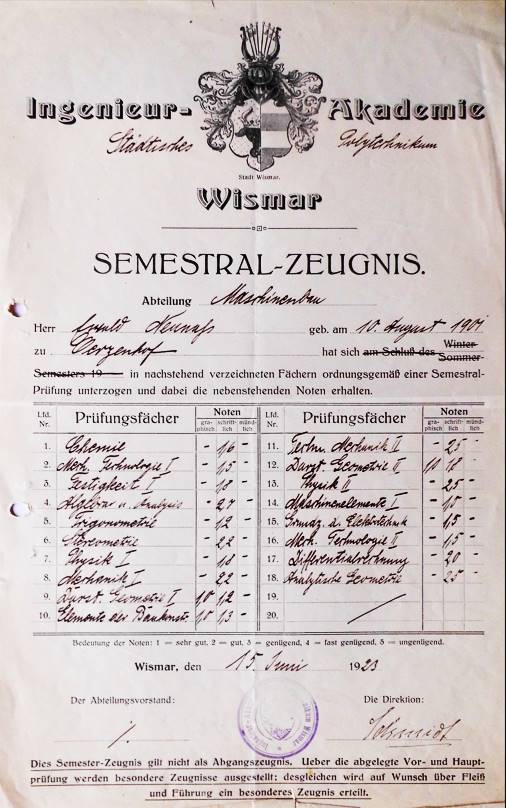 Ingenieur-Akademie
Städtisches Polytechnikum
Stadt Wismar.
Wismar
SEMESTRAL-ZEUGNIS.
Abteilung Maschinenbau
Herr Ewald geb. am 10. August 1901
zu hat sich am Schluß des Winter-
Sommer-
Semesters 19 in nachstehend verzeichneten Fächern ordnungsgemäß einer Semestral-
Prüfung unterzogen und dabei die nebenstehenden Noten erhalten.
Lfd. Nr. Prüfungsfächer Noten Lfd. Nr. Prüfungsfächer Noten
graphisch schriftlich mündlich graphisch schriftlich mündlich
1. Chemie - 1,6 - 11. Techn. Mechanik II - 2,5 -
2. Mech. Technologie I - 1,5 - 12. Darst. Geometrie II 1,0 1,8 -
3. Festigkeit I - 1,8 - 13. Physik II - 2,5 -
4. Algebra u. Analysis - 2,7 - 14. Maschinenelemente I - 1,5 -
5. Trigonometrie - 1,2 - 15. Elektrotechnik - 1,5 -
6. Stereometrie - 2,2 - 16. Mech. Technologie II - 1,5 -
7. Physik I - 1,8 - 17. Differentialrechnung - 2,0 -
8. Mechanik I - 2,2 - 18. Analytische Geometrie - 2,5 -
9. Darst. Geometrie I 1,0 1,2 - 19.
10. Elemente der Baukonstr. 1,0 1,3 - 20.
Bedeutung der Noten: 1 = sehr gut, 2 = gut, 3 = genügend, 4 = fast genügend, 5 = ungenügend.
Wismar, den 15. Juni 1923
Der Abteilungsvorstand: Die Direktion:
Schmidt
Dies Semester-Zeugnis gilt nicht als Abgangszeugnis. Ueber die abgelegte Vor- und Haupt-
prüfung werden besondere Zeugnisse ausgestellt; desgleichen wird auf Wunsch über Fleiß
und Führung ein besonderes Zeugnis erteilt.